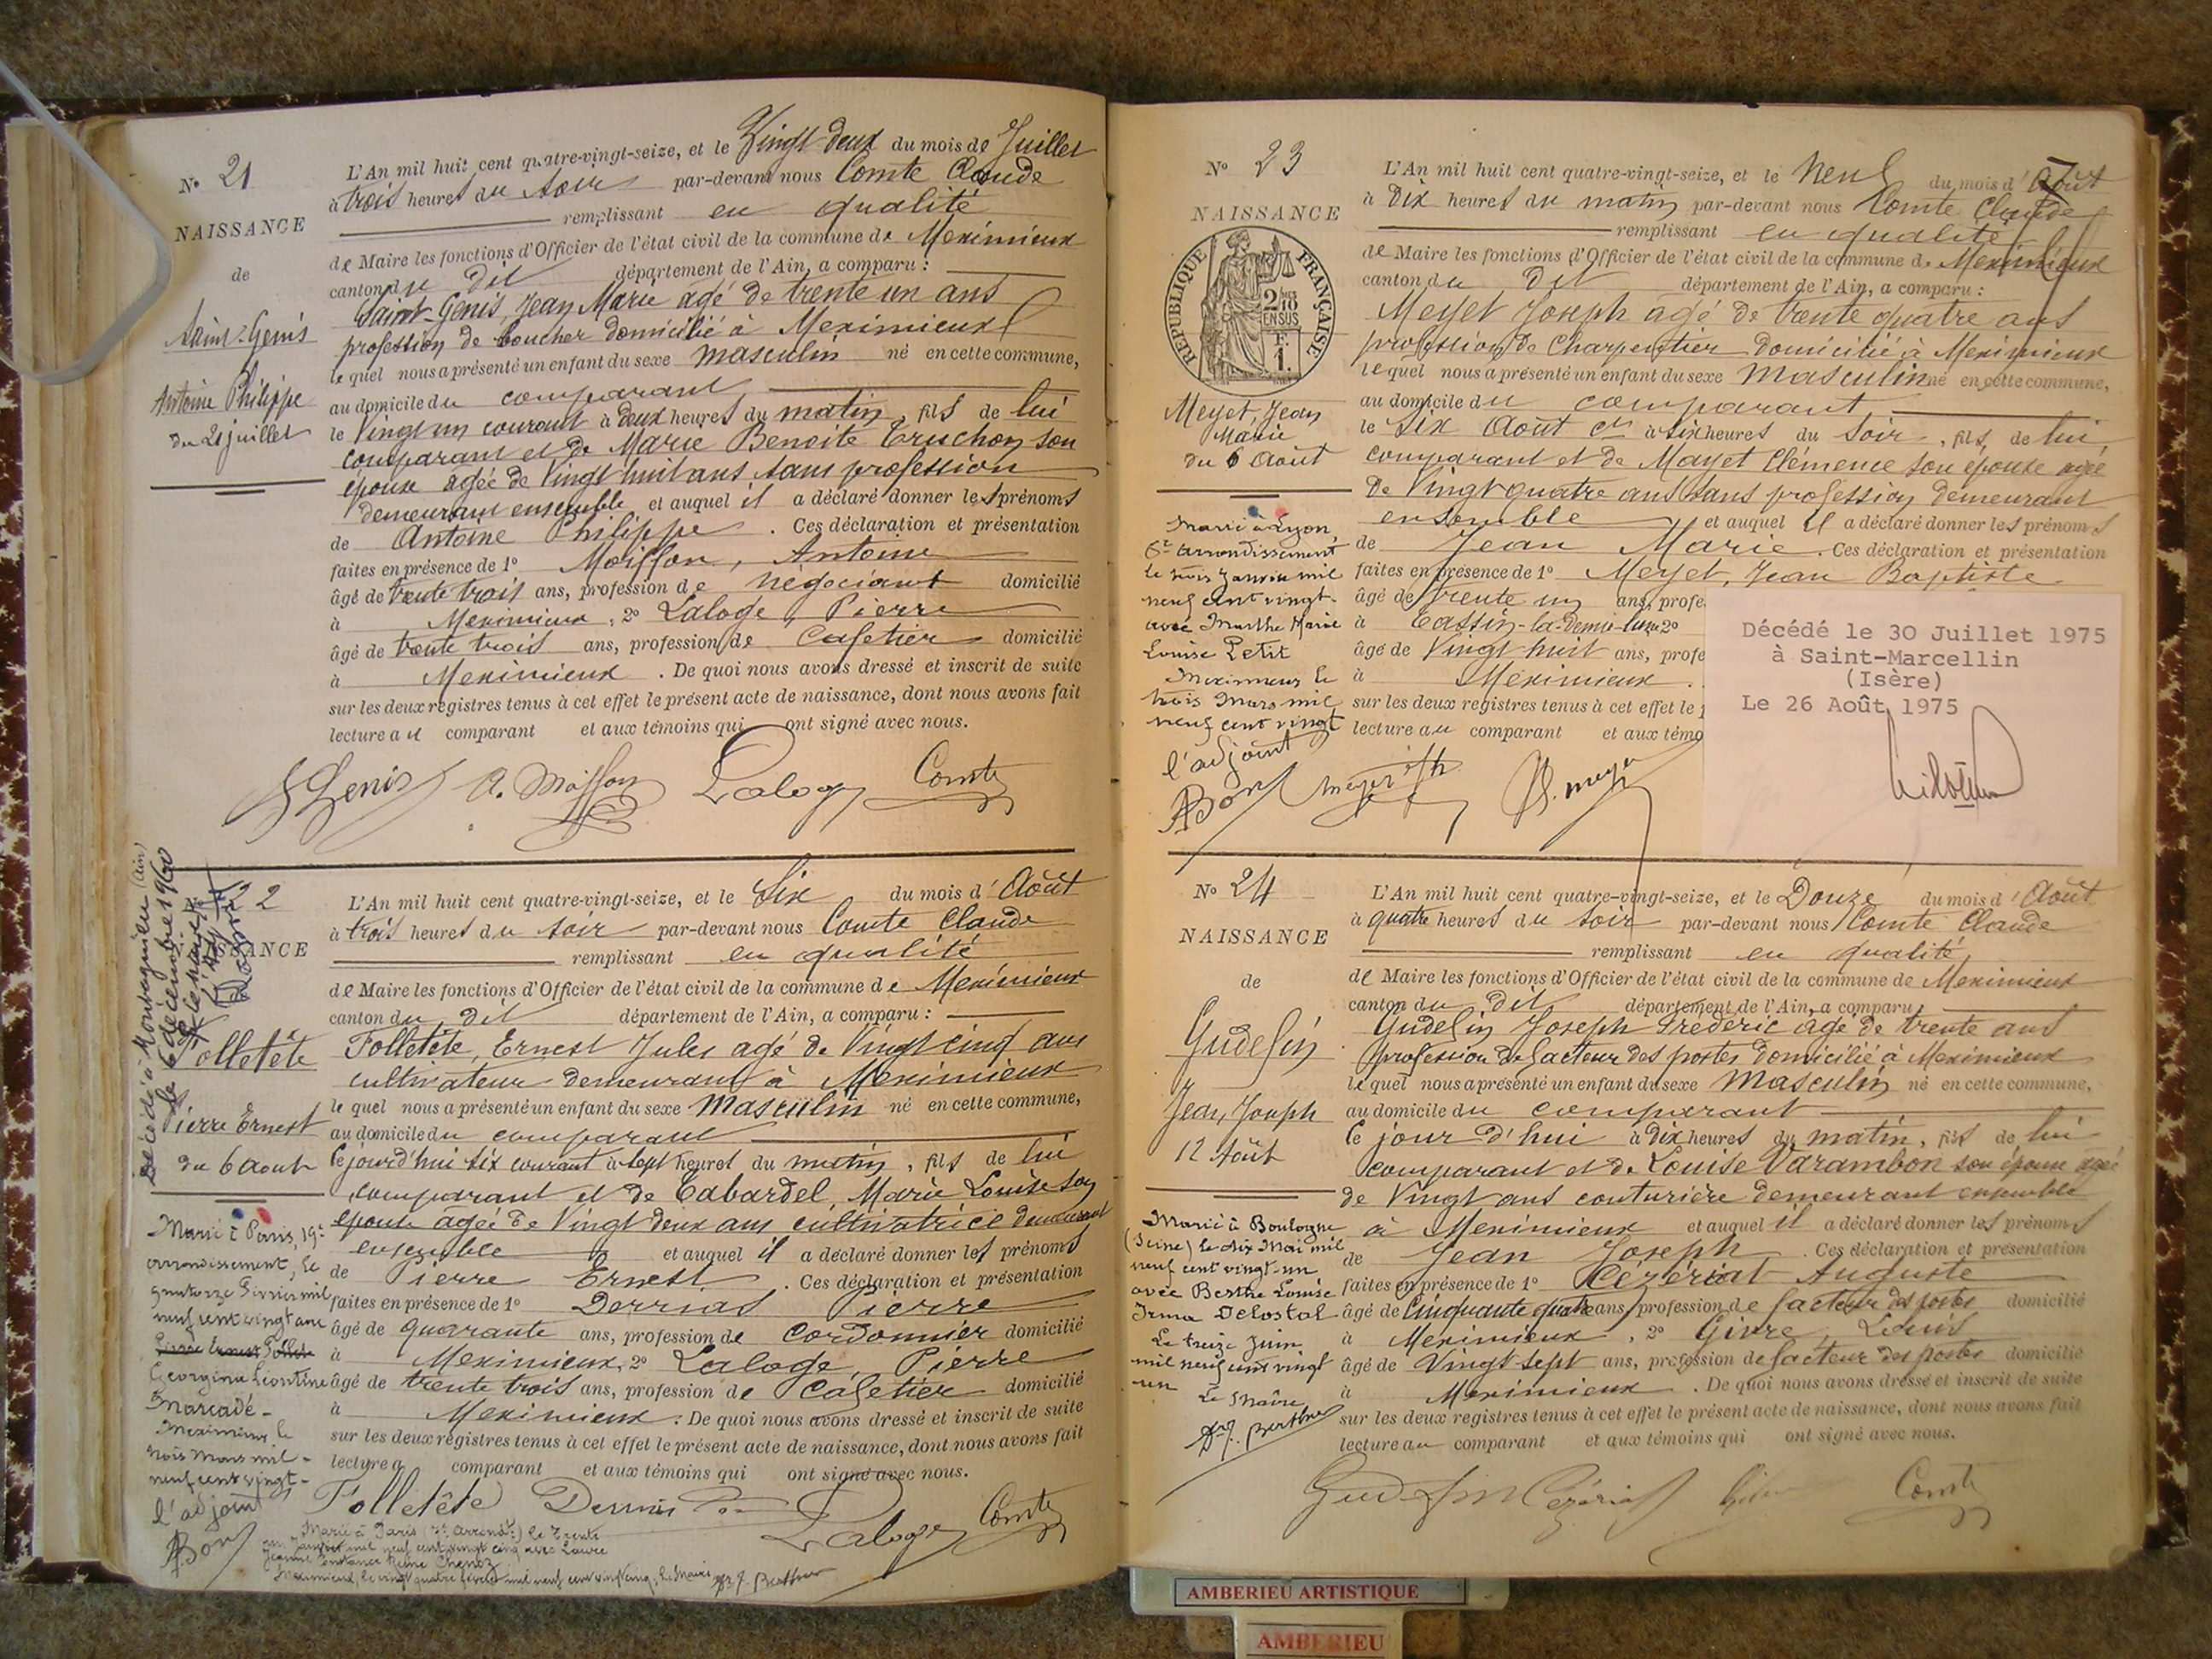 N° 21
NAISSANCE
de
Saint-Genis
Antoine Philippe
du 21 juillet
L'An mil huit cent quatre-vingt-seize, et le Vingt deux du mois de Juillet
à trois heures du soir par-devant nous Comte Claude
remplissant en qualité
de Maire les fonctions d'Officier de l'état civil de la commune de Meximieux
canton du dit département de l'Ain, a comparu :
Saint-Genis, Jean Marie agé de trente un ans
profession de boucher domicilié à Meximieux
le quel nous a présenté un enfant du sexe masculin né en cette commune,
au domicile du comparant
le Vingt un courant à deux heures du matin, fils de lui
comparant et de Marie Benoite Truchon son
épouse agée de Vingt huit ans sans profession
demeurant ensemble et auquel il a déclaré donner les prénoms
de Antoine Philippe . Ces déclaration et présentation
faites en présence de 1° Moiffon, Antoine
âgé de trente trois ans, profession de négociant domicilié
à Meximieux, 2° Laloge, Pierre
âgé de trente trois ans, profession de Cafetier domicilié
à Meximieux . De quoi nous avons dressé et inscrit de suite
sur les deux registres tenus à cet effet le présent acte de naissance, dont nous avons fait
lecture au comparant et aux témoins qui ont signé avec nous.
StGenis A. Moiffon Laloge Comte
22
NAISSANCE
Folletête
Pierre Ernest
du 6 Aout
Décédé à Montagnieu (Ain)
le 6 décembre 1960
L'An mil huit cent quatre-vingt-seize, et le Six du mois d'Août
à trois heures du soir par-devant nous Comte Claude
remplissant en qualité
de Maire les fonctions d'Officier de l'état civil de la commune de Meximieux
canton du dit département de l'Ain, a comparu :
Folletête, Ernest Jules agé de Vingt cinq ans
cultivateur demeurant à Meximieux
le quel nous a présenté un enfant du sexe Masculin né en cette commune,
au domicile du comparant
le jourd'hui six courant à sept heures du matin, fils de lui
comparant et de Tabardel, Marie Louise son
épouse agée de Vingt deux ans cultivatrice demeurant
ensemble et auquel il a déclaré donner les prénoms
de Pierre Ernest . Ces déclaration et présentation
faites en présence de 1° Derrias Pierre
âgé de quarante ans, profession de cordonnier domicilié
à Meximieux, 2° Laloge, Pierre
âgé de trente trois ans, profession de Cafetier domicilié
à Meximieux . De quoi nous avons dressé et inscrit de suite
sur les deux registres tenus à cet effet le présent acte de naissance, dont nous avons fait
lecture a comparant et aux témoins qui ont signé avec nous.
Folletête Laloge Comte
Marié à Paris, 19e
arrondissement, le
quatorze Février mil
neuf cent vingt avec
Georgina Léontine
Marcadé -
Meximieux le
trois Mars mil
neuf cent vingt -
l'adjoint
Marié à Paris arrondt) le Trente
Janvier mil neuf cent vingt cinq avec Laure
Jeanne Constance Reine
Meximieux, le vingt quatre février mil neuf cent vingt cinq, le Maire
N° 23
NAISSANCE
RÉPUBLIQUE FRANÇAISE
2/10 EN SUS
F. 1.
Meyet, Jean
Marie
du 6 Août
L'An mil huit cent quatre-vingt-seize, et le Neuf du mois d'Août
à Dix heures du matin par-devant nous Comte Claude
remplissant en qualité
de Maire les fonctions d'Officier de l'état civil de la commune de Meximieux
canton du dit département de l'Ain, a comparu :
Meyet Joseph agé de trente quatre ans
profession de Charpentier domicilié à Meximieux
le quel nous a présenté un enfant du sexe Masculin né en cette commune,
au domicile du comparant
le Six Août ct à six heures du soir, fils de lui
comparant et de Mayet Clémence son épouse agée
de Vingt quatre ans sans profession demeurant
ensemble et auquel il a déclaré donner les prénoms
de Jean Marie . Ces déclaration et présentation
faites en présence de 1° Meyet, Jean Baptiste
âgé de trente un ans, profe
à Tassin-la-Demie-Lune 2°
âgé de Vingt huit ans, profe
à Meximieux .
sur les deux registres tenus à cet effet le p
lecture au comparant et aux témo
Décédé le 30 Juillet 1975
à Saint-Marcellin
(Isère)
Le 26 Août 1975
Marié à Lyon
6e arrondissement
le trois Janvier mil
neuf cent vingt
avec Marthe Marie
Louise Petit
Meximieux le
trois Mars mil
neuf cent vingt
l'adjoint
N° 24
NAISSANCE
de
Gudefin
Jean Joseph
12 Août
L'An mil huit cent quatre-vingt-seize, et le Douze du mois d'Août
à quatre heures du soir par-devant nous Comte Claude
remplissant en qualité
de Maire les fonctions d'Officier de l'état civil de la commune de Meximieux
canton du dit département de l'Ain, a comparu
Gudefin Joseph Frédéric agé de trente ans
profession de facteur des postes domicilié à Meximieux
le quel nous a présenté un enfant du sexe Masculin né en cette commune,
au domicile du comparant
le jour d'hui à dix heures du matin, fils de lui
comparant et de Louise Varambon son épouse agée
de Vingt ans couturière demeurant ensemble
à Meximieux et auquel il a déclaré donner les prénoms
de Jean Joseph . Ces déclaration et présentation
faites en présence de 1° Cézériat Auguste
âgé de Cinquante quatre ans, profession de facteur des postes domicilié
à Meximieux, 2° Givre, Louis
âgé de Vingt sept ans, profession de facteur des postes domicilié
à Meximieux . De quoi nous avons dressé et inscrit de suite
sur les deux registres tenus à cet effet le présent acte de naissance, dont nous avons fait
lecture au comparant et aux témoins qui ont signé avec nous.
Gudefin Cézériat Comte
Marié à Boulogne
(Seine) le dix Mai mil
neuf cent vingt-un
avec Berthe Louise
Irma Delostal
Le treize Juin
mil neuf cent vingt
-un
Le Maire
AMBERIEU ARTISTIQUE
AMBERIEU